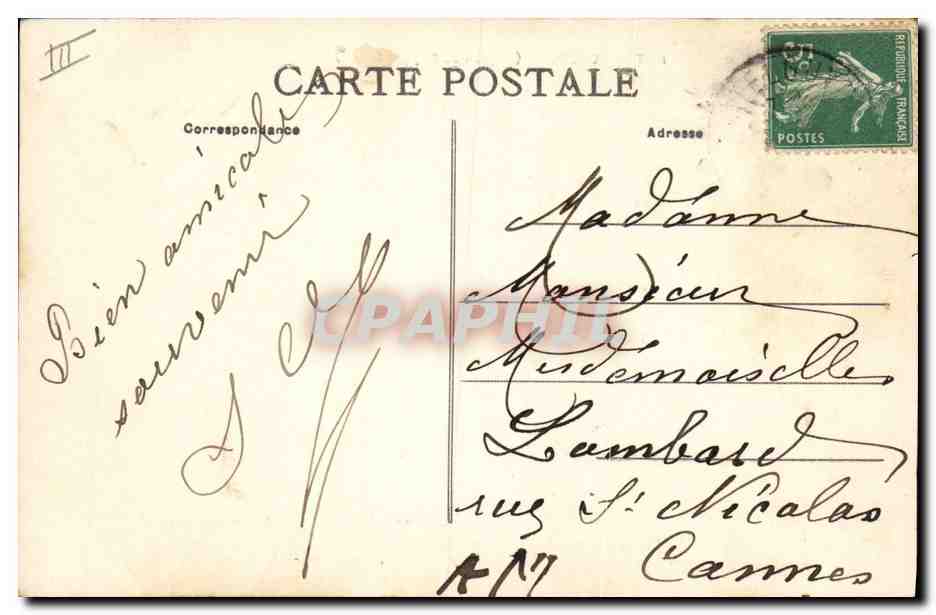 III
CARTE POSTALE
Correspondance
Adresse
5c
REPUBLIQUE FRANÇAISE
POSTES
Bien amicale
souvenir
Madame
Monsieur
Mesdemoiselles
Lombard
rue St Nicolas
Cannes
A M
CPAPHIL